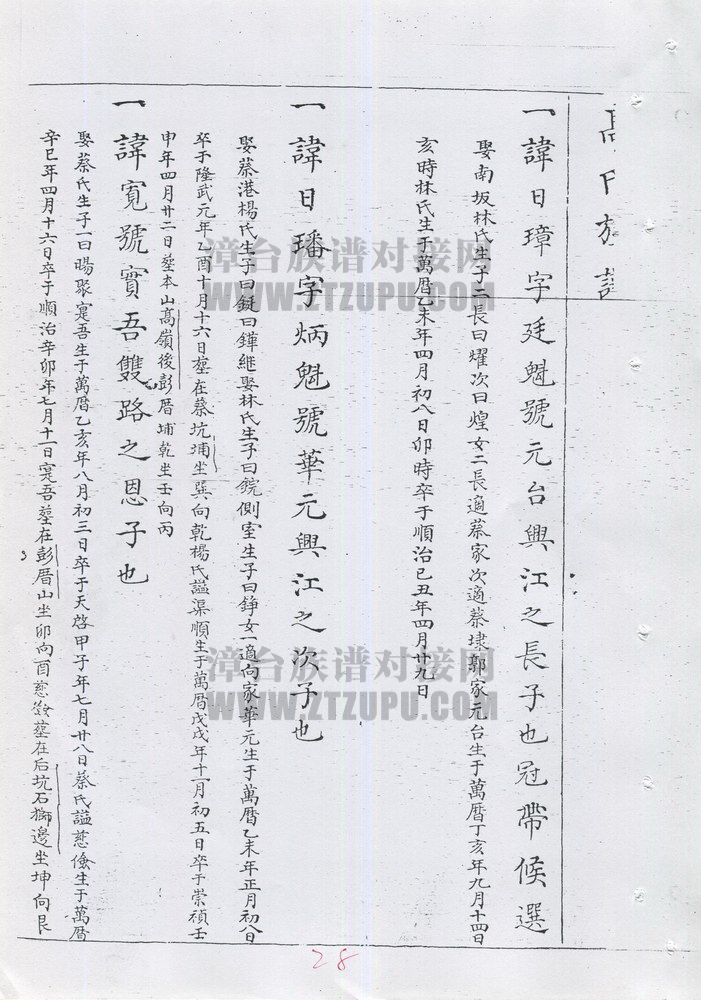 高氏族譜
一諱日璋字廷魁號元台興江之長子也冠帶候選
娶南坂林氏生子二長曰耀次曰煌女二長適蔡家次適蔡埭郭家元台生于萬曆丁亥年九月十四日
亥時林氏生于萬曆乙未年四月初八日卯時卒于順治己丑年四月廿九日
一諱日璠字炳魁號華元興江之次子也
娶蔡港楊氏生子曰鋌曰鏵繼娶林氏生子曰鋎側室生子曰錚女一適向家華元生于萬曆乙未年正月初八日
卒于隆武元年乙酉十月十六日塟在蔡坑埔坐巽向乾楊氏謚渠順生于萬曆戊戌年十一月初五日卒于崇禎壬
申年四月廿二日塟本山高嶺後彭厝埔乾坐壬向丙
一諱寬號實吾雙路之恩子也
娶蔡氏生子一曰暘聚寔吾生于萬曆乙亥年八月初三日卒于天啓甲子年七月廿八日蔡氏謚慈儉生于萬曆
辛巳年四月十六日卒于順治辛卯年七月十一日寔吾塟在彭厝山坐卯向酉慈儉塟在后坑石獅邊坐坤向艮
漳台族谱对接网
WWW.ZTZUPU.COM
漳台族谱对接网
WWW.ZTZUPU.COM
28